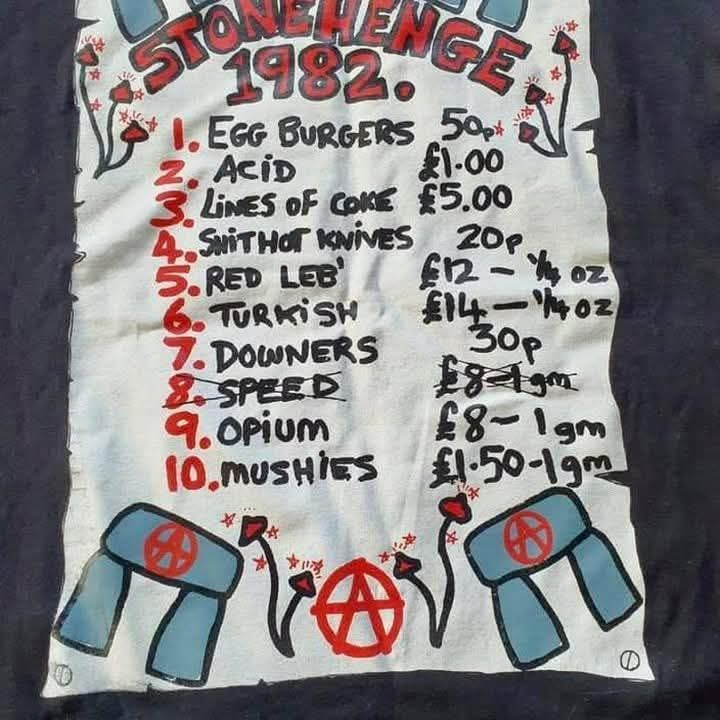 STONEHENGE
1982.
1. EGG BURGERS 50p
2. ACID £1.00
3. LINES OF COKE £5.00
4. SHIT HOT KNIVES 20p
5. RED LEB' £12 - 1/4 oz
6. TURKISH £14 - 1/4 oz
7. DOWNERS 30p
8. SPEED £8-1gm
9. OPIUM £8 - 1gm
10. MUSHIES £1.50-1gm